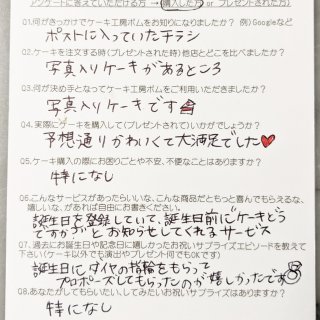 アンケートに答えていただける方 → 購入した方 or プレゼントされた方)
Q1.何がきっかけでケーキ工房ボムをお知りになりましたか? 例)Googleなど
ポストに入っていたチラシ
Q2.ケーキを注文する時(プレゼントされた時)他店とどこを比べましたか?
写真入りケーキがあるところ
Q3.何が決め手となってケーキ工房ボムをご利用いただきましたか?
写真入りケーキです
Q4.実際にケーキを購入して(プレゼントされて)いかがでしょうか?
予想通りかわいくて大満足でした♥
Q5.ケーキ購入の際にお困りごとや不安、不便なことはありますか?
特になし
Q6.こんなサービスがあったらいいな、こんな商品だともっと喜んでもらえるな、
嬉しいな、があれば自由にお書きください。
誕生日を登録していて、誕生日前に"ケーキどう
ですか?"とお知らせしてくれるサービス
Q7.過去にお誕生日や記念日に嬉しかったお祝いサプライズエピソードを教えて
下さい(ケーキ以外でも演出やプレゼント何でもOKです)
誕生日にダイヤの指輪をもらって
プロポーズしてもらったのが嬉しかったです
Q8.あなたがしてもらいたい、してみたいお祝いサプライズはありますか?
特になし